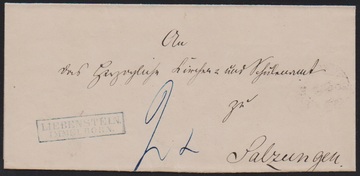 An
das Herzogliche Kirchen- und Schulenamt
zu
Salzungen.
LIEBENSTEIN